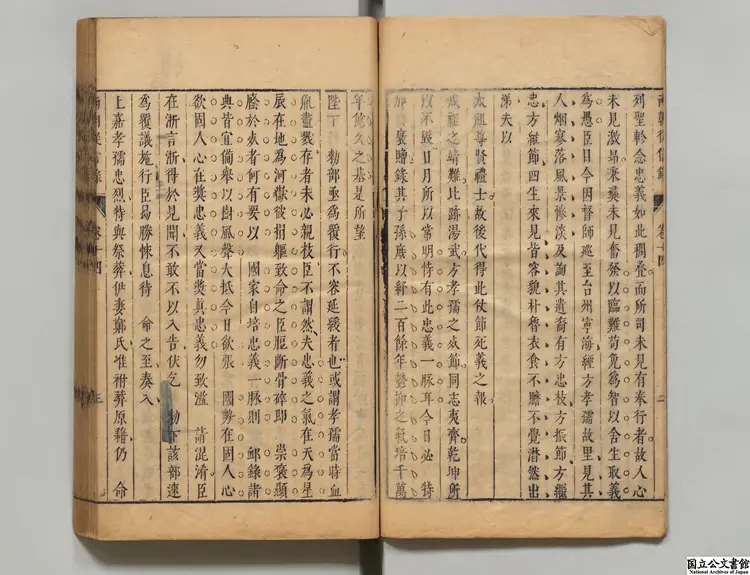 列聖軫念忠義如此稠疊而所司未見有奉行者故人心
未見激昂秉彝未見奮發以臨難苟免為智以舍生取義
為愚臣目今因督師巡至台州寧海經方孝孺故里見其
人烟寥落風景慘淡及詢其遺裔有方忠枝方振節方繼
忠方維節四生來見皆容貌朴魯衣食不贍不覺潸然出
涕夫以
太祖尊賢禮士故後代得此仗節死義之報
成祖之靖難比跡湯武方孝孺之成節同志夷齊乾坤所
以不毀日月所以常明恃有此忠義一脉耳今日必 特
加 褒贈錄其子孫庶以紓二百餘年鬱抑之氣培千萬
二
年餘久之基是所望
陛下 勅部亟為覆行不容延緩者也或謂孝孺當時血
胤盡歿存者未必親枝臣不謂然夫忠義之氣在天為星
辰在地為河嶽彼捐軀致命之臣脰斷骨碎即 崇褒顯
廕於歿者何有要以 國家自培忠義一脉則 䘏錄諸
典昔宜備舉以樹風聲大抵今日欲張 國勢在固人心
欲固人心在獎忠義又當獎真忠義勿致濫 請混淆臣
在浙言浙得於見聞不敢不以入告伏乞 勅下該部速
為覆議施行臣曷勝悚息待 命之至奏入
上嘉孝孺忠烈特與祭葬伊妻鄭氏准祔葬原籍仍 命
兩朝從信錄 卷十四 三
国立公文書館
National Archives of Japan